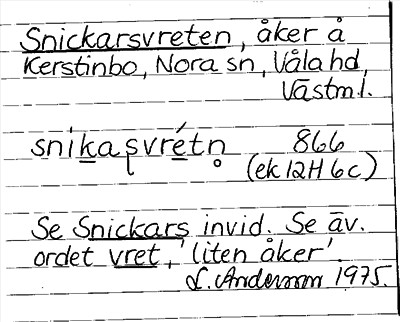 Snickarsvreten, åker å
Kerstinbo, Nora sn, Våla hd,
Västml.
snikaʂvrétn̥ 866
(ek 12H 6c)
Se Snickars invid. Se äv.
ordet vret, 'liten åker'.
L. Andersson 1975.